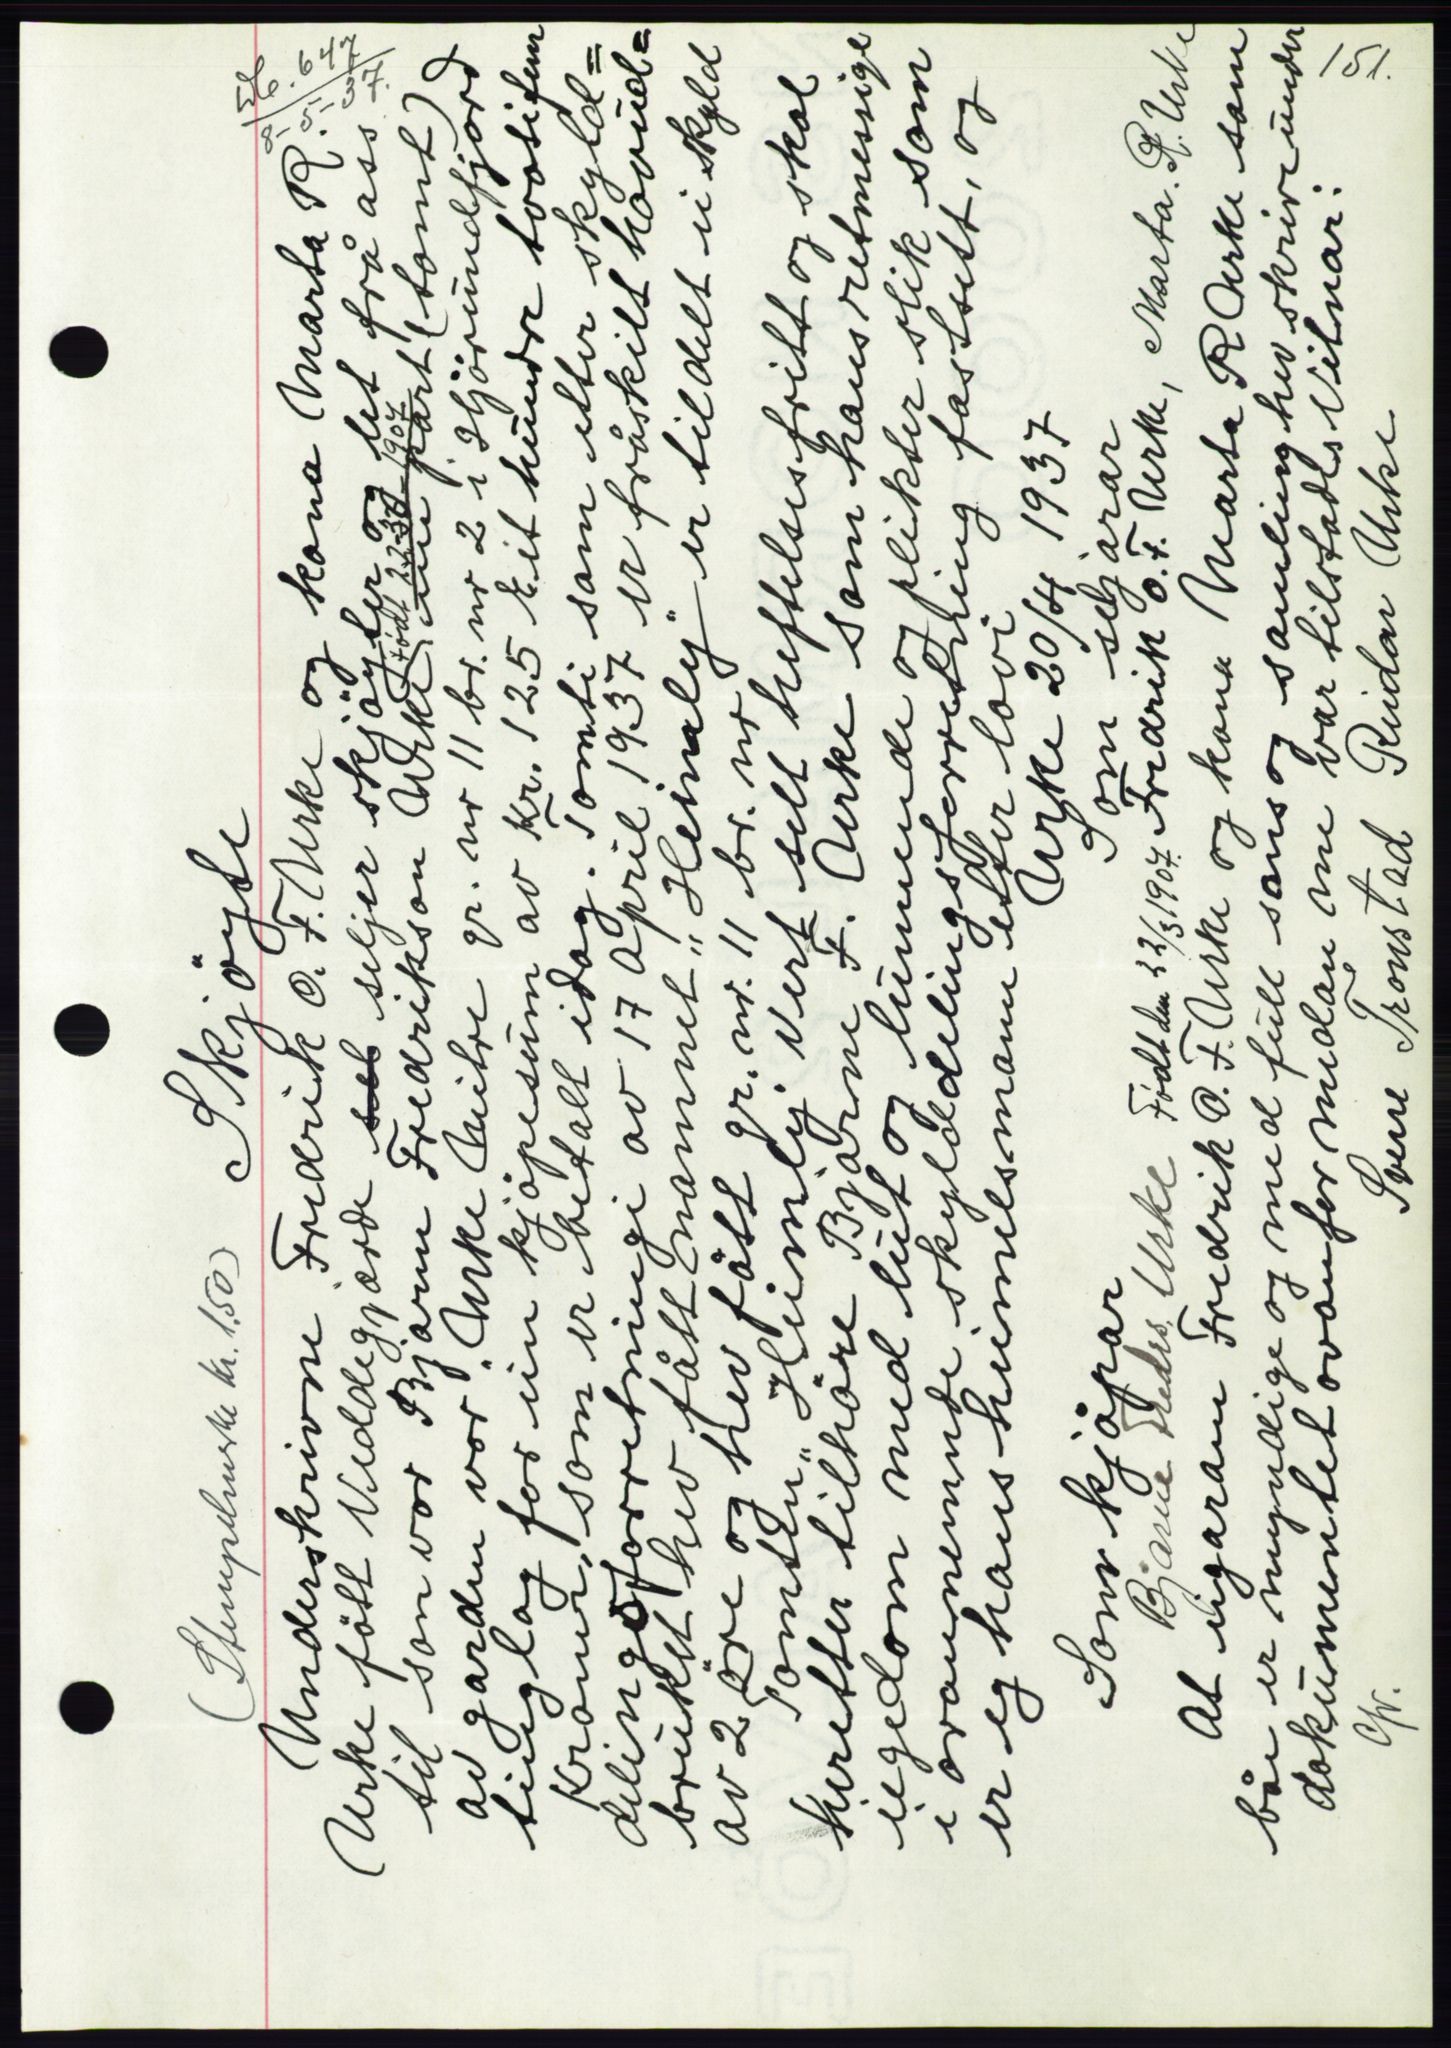 (Stempelmerke kr. 1.50)
Skjöyte
D.b. 647
8-5-37.
Underskrivne Fredrik O. F. Urke og kona Marta R.
Urke fött Viddegjærde sel seljer skjöyter og let frå ass
til son vor Bjarne Fredrikson Urke, ein part (tomt)
född 22.3.1907
av garden vor "Urke Meitre gr. nr 11 br. nr 2 i Hjörundfjord
tinglag for ein kjöpesum av Kr. 125 - eit hundre tvotifem
Kroner, som er betalt idag. Tomti som etter skyld=
delingsforretningi av 17 April 1937 er fråskilt hovud=
bruket hev fått namnet "Heimely" er tildelt ei skyld
av 2 öre og hev fått gr. nr. 11 br. nr
Tomten "Heimly" vert selt heftelsesfritt og skal
heretter tilhöre Bjarne F. Urke som hans retmessige
eigedom med lut og lunnende og plikter slik som
i ovannemnde skylddelingsforretning fastsett, og
er eg hans heimelsmann etter lovi
Urke 20/4 1937
Som kjöpar
Som seljarar
Bjarne Fredr. Urke Født den 22/3 1907. Fredrik O. F. Urke, Marta R. Urke
At eigaran Fredrik O. F. Urke og kona Marta R Urke som
båe er myndige og med full sans og samling hev skrive under
dokumentet ovanfor medan me var tilstades Vitnar:
Sverre Tronstad Reidar Urke
151.